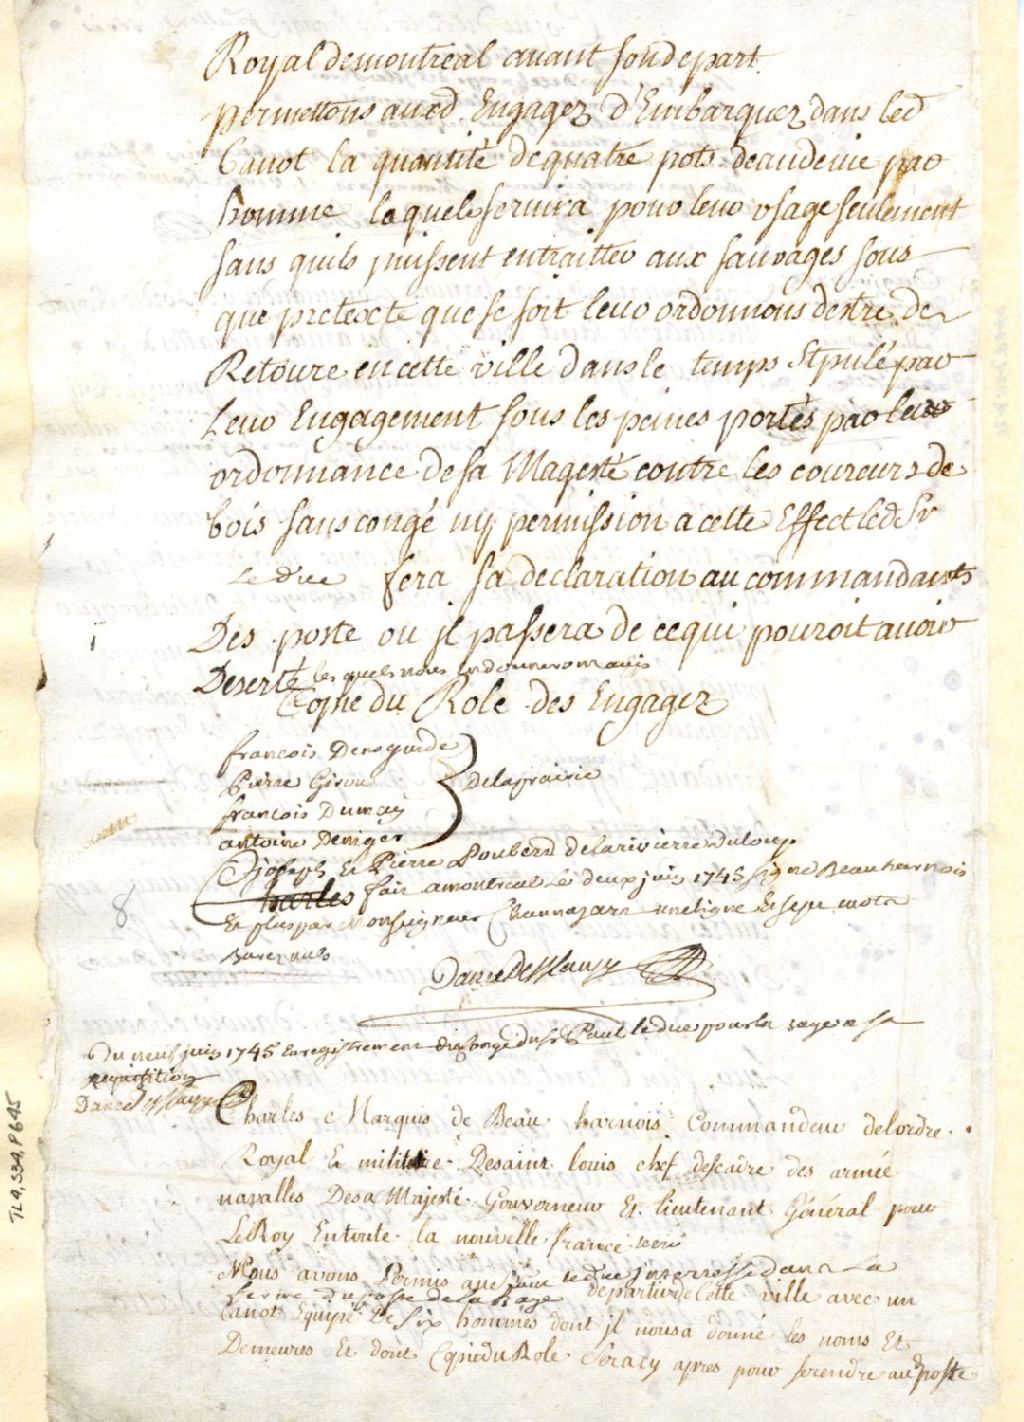 Royal de montreal avant son depart.
permettons auxd. Engagez d'Embarquez dans led
Canot la quantité de quatre pots deaudevie par
homme laquele servira pour leur usage seulement
sans quils puissent entraitter aux sauvages sous
que pretexte que se soit leur ordonnons destre de
Retoure en cette ville dans le temps Stpulé par
Leur Engagement sous les peines portés par leur
ordonnance de sa Magesté contre les coureurs de
bois sans congé ny permission a cette Effect led Sr
Le duc fera sa declaration au commandants
Des poste ou jl passera de ce qui pouroit avoir
Deserté les quels nous en donnerons avis
Copie du Role des Engagez
francois Deroguide
Pierre Girou } delaprairie
francois Dumay
antoine Deniger
Joseph Et Pierre de la rivierre du loup
harles fait a montreal Le deux juin 1745 signé Beauharnois
Et plus par Monseigneur une ligne Et sept mots
Rayez nuls
Danré DeBlanzy
Du neuf juin 1745 Enregistrement du Sr Paul le duc pour la a sa
requisition
Danré DeBlanzy
Charles Marquis de Beau harnois Commandeur de lordre
Royal Et militaire Desaint louis chef descadre des armée
navalles Desa Majesté Gouverneur Et lieutenant Général pour
Le Roy Entoute la nouvelle france
Nous avons Permis au Sr le duc jnteressé dans La
ferme du poste de la Baye departir de Cette ville avec un
Canot Equipé De Six hommes dont jl nous a donné les noms Et
Demeures Et dont Copie du Role sera cy apres pour serendre aud poste
8
TL4,S34,P645